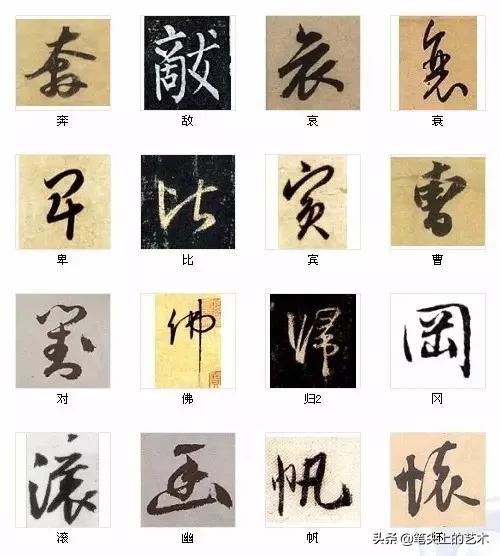 奔 敌 哀 衰
卑 比 宾 曹
对 佛 归2 冈
滚 幽 帆 怀
头条 @笔尖上的艺术